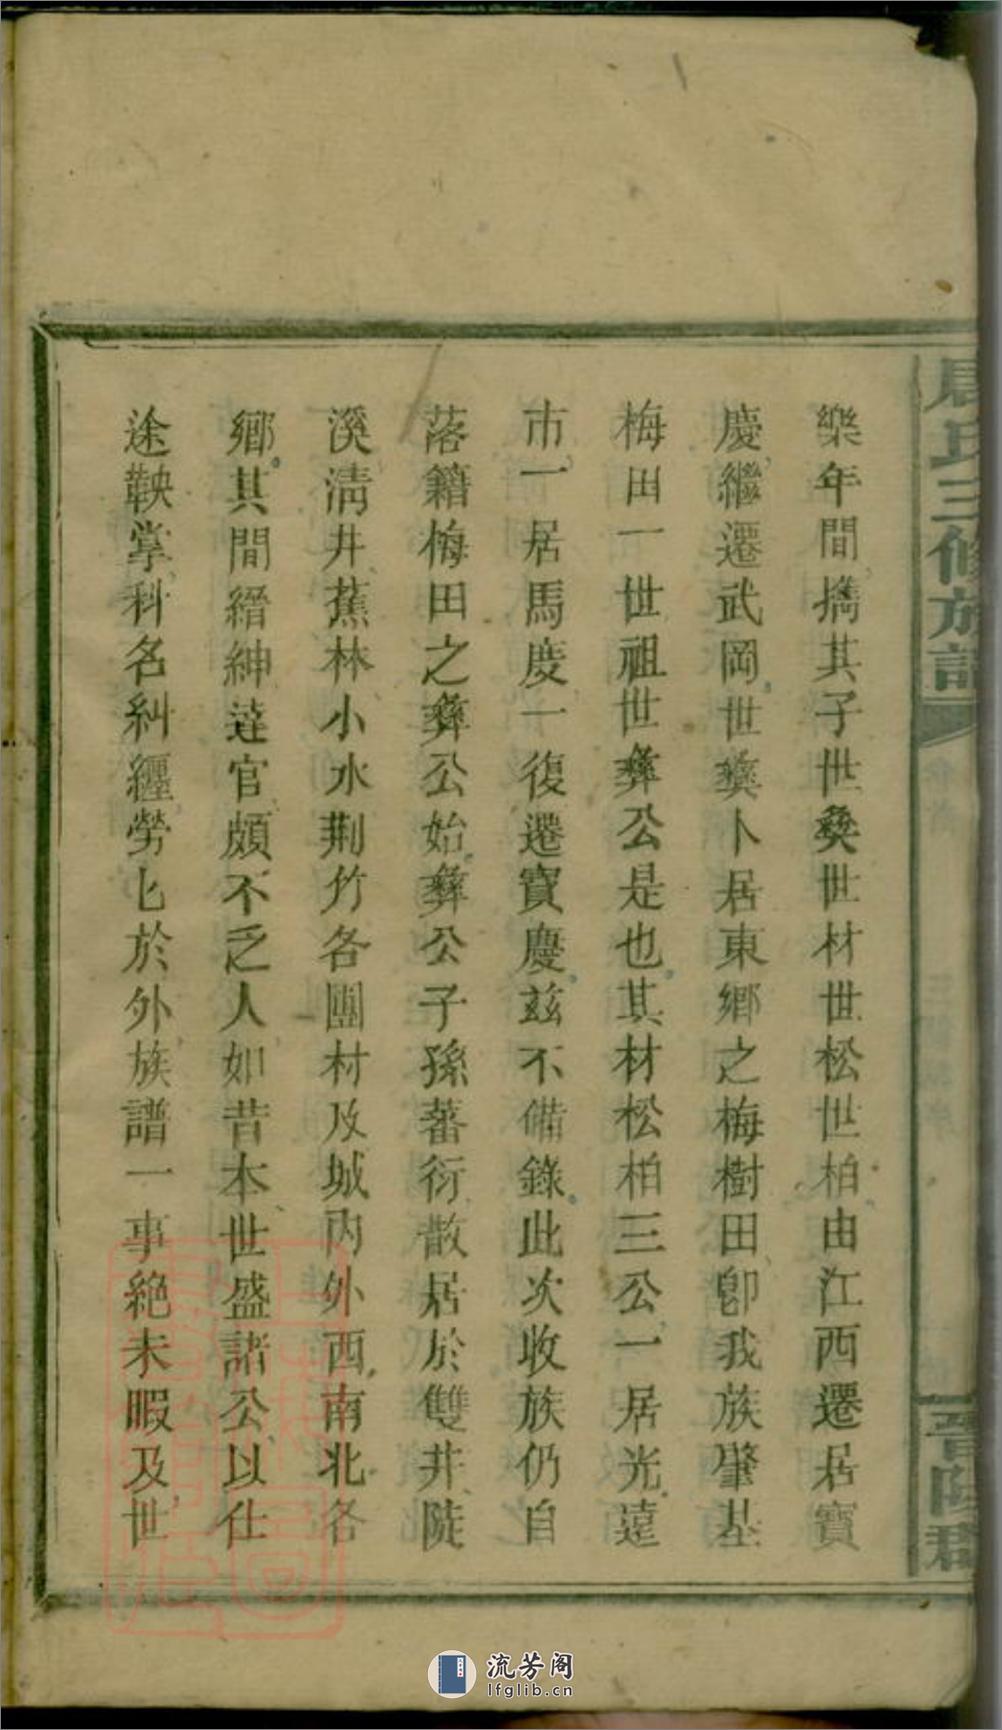 樂年間攜其子世彝世材世松世柏由江西遷居寶
慶繼遷武岡世彝卜居東鄉之梅樹田卽我族肇基
梅田一世祖世彝公是也其材松柏三公一居光遠
市一居馬慶一復遷寶慶茲不備錄此次收族仍自
落籍梅田之彝公始彝公子孫蕃衍散居於雙井陡
溪淸井蕉林小水荆竹各團村及城內外西南北各
鄉其間縉紳達官頗不乏人如昔本世盛諸公以仕
途鞅掌科名糾纒勞匕於外族譜一事絶未暇及世
氏三修族譜
晉陽郡
流芳阁
lfglib.cn